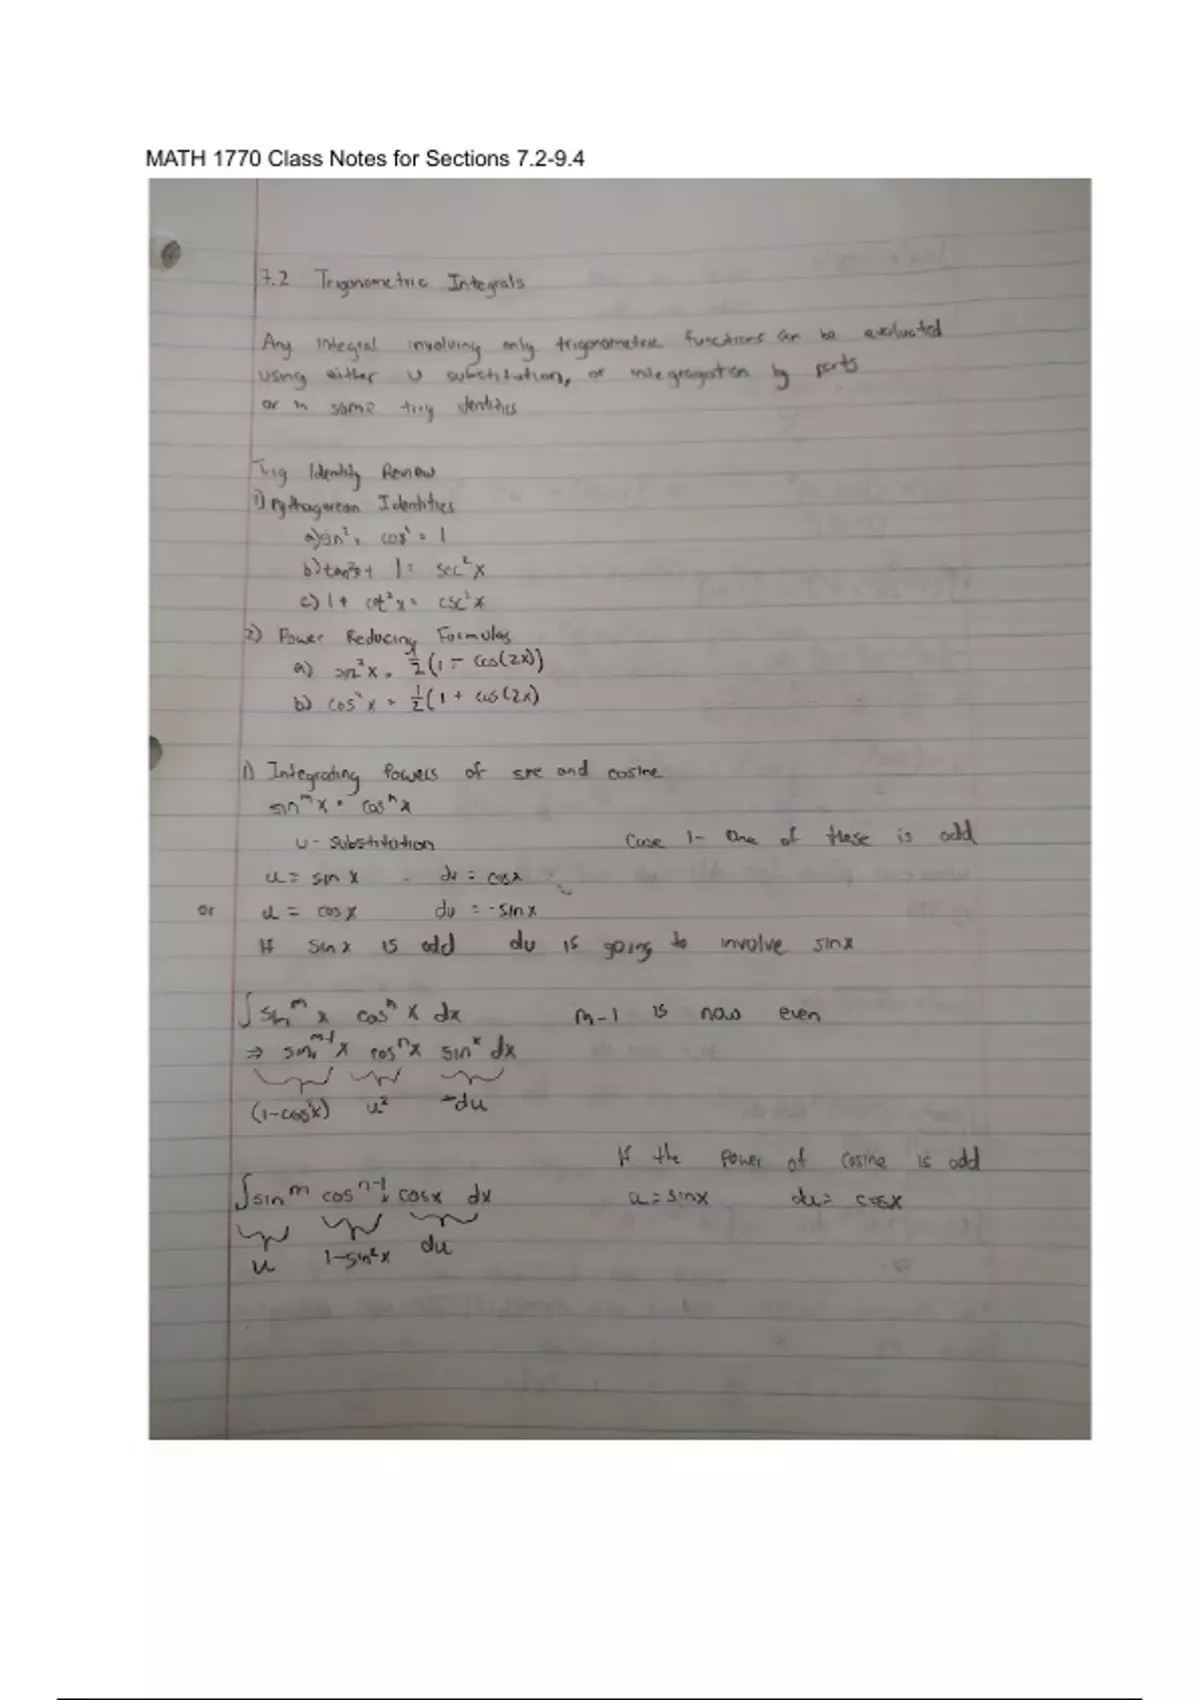 MATH 1770 Class Notes for Sections 7.2-9.4
7.2 Trigonometric Integrals
Any integral involving only trigonometric functions can be evaluated
using either u substitution, or integragation by parts
or in some trig identities
Trig Identity Review
1) Pythagorean Identities
a) sin² + cos² = 1
b) tan²x + 1 = sec²x
c) 1 + cot²x = csc²x
2) Power Reducing Formulas
a) sin²x = 1/2 (1 - cos(2x))
b) cos²x = 1/2 (1 + cos(2x)
1) Integrating Powers of sine and cosine
sin^m x · cos^n x
u - substitution Case 1 - One of these is odd
u = sin x du = cosx
or u = cos x du = -sin x
If sin x is odd du is going to involve sinx
∫ sin^m x cos^n x dx m-1 is now even
⇒ sin^m-1 x cos^n x sin^x dx
(1-cos²x) u² -du
If the power of cosine is odd
∫ sin^m cos^n-1 x cosx dx u = sinx du = cosx
u 1-sin²x du